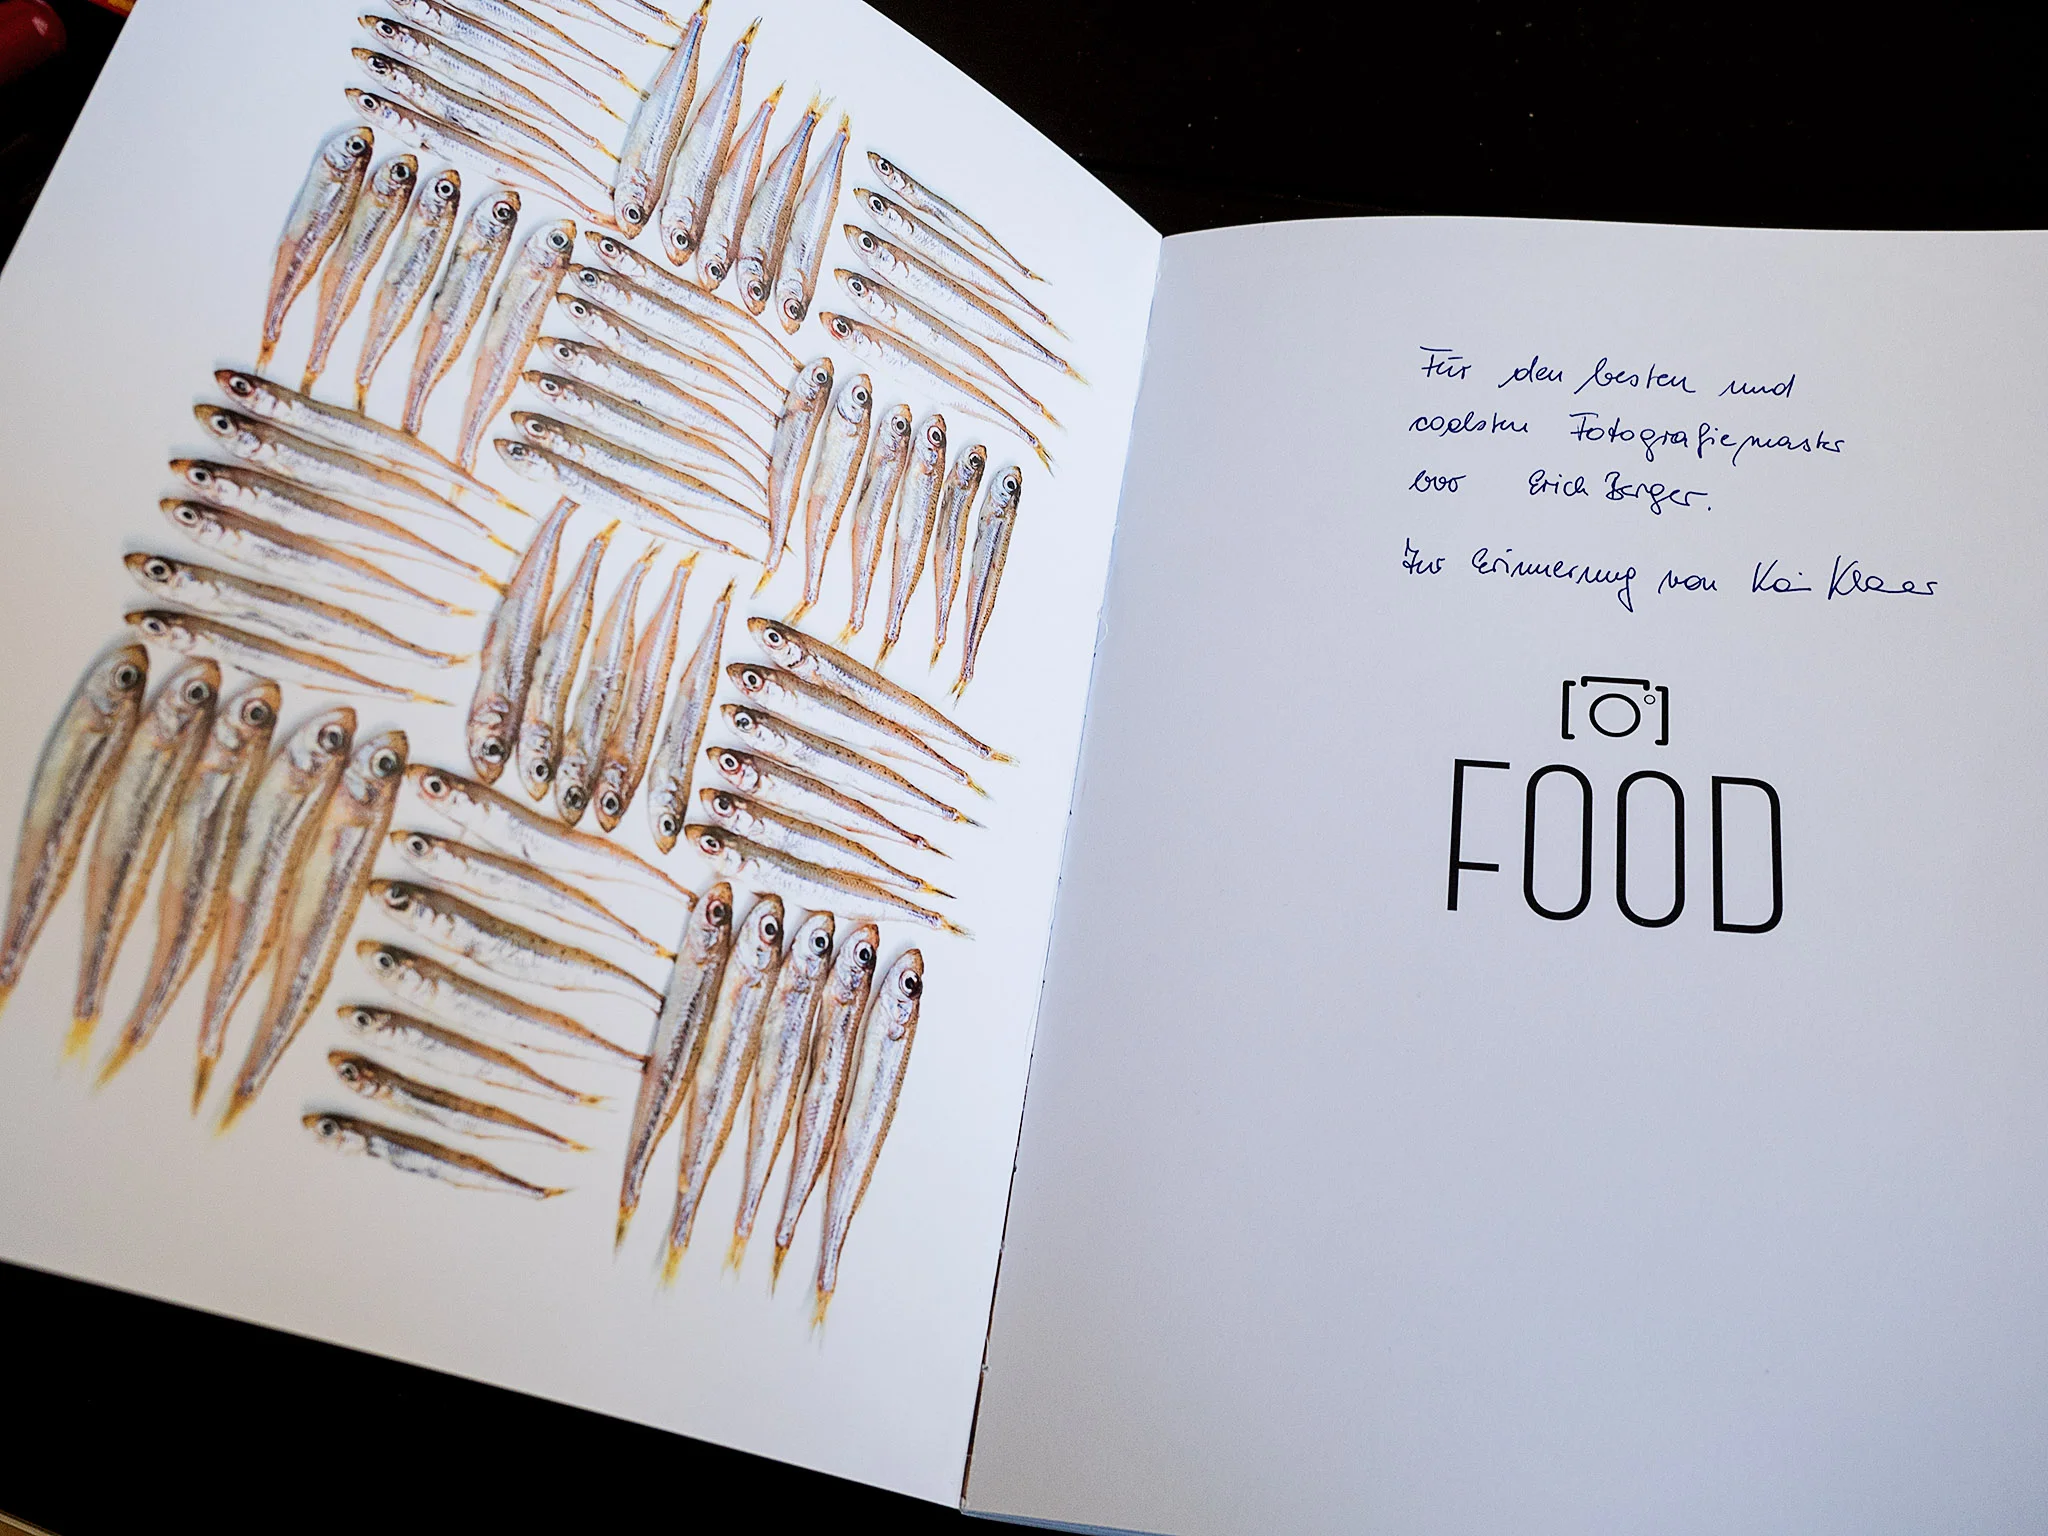 Für den besten und
coolsten Fotografiemaster
Erich Berger.
Zur Erinnerung von Kai
FOOD